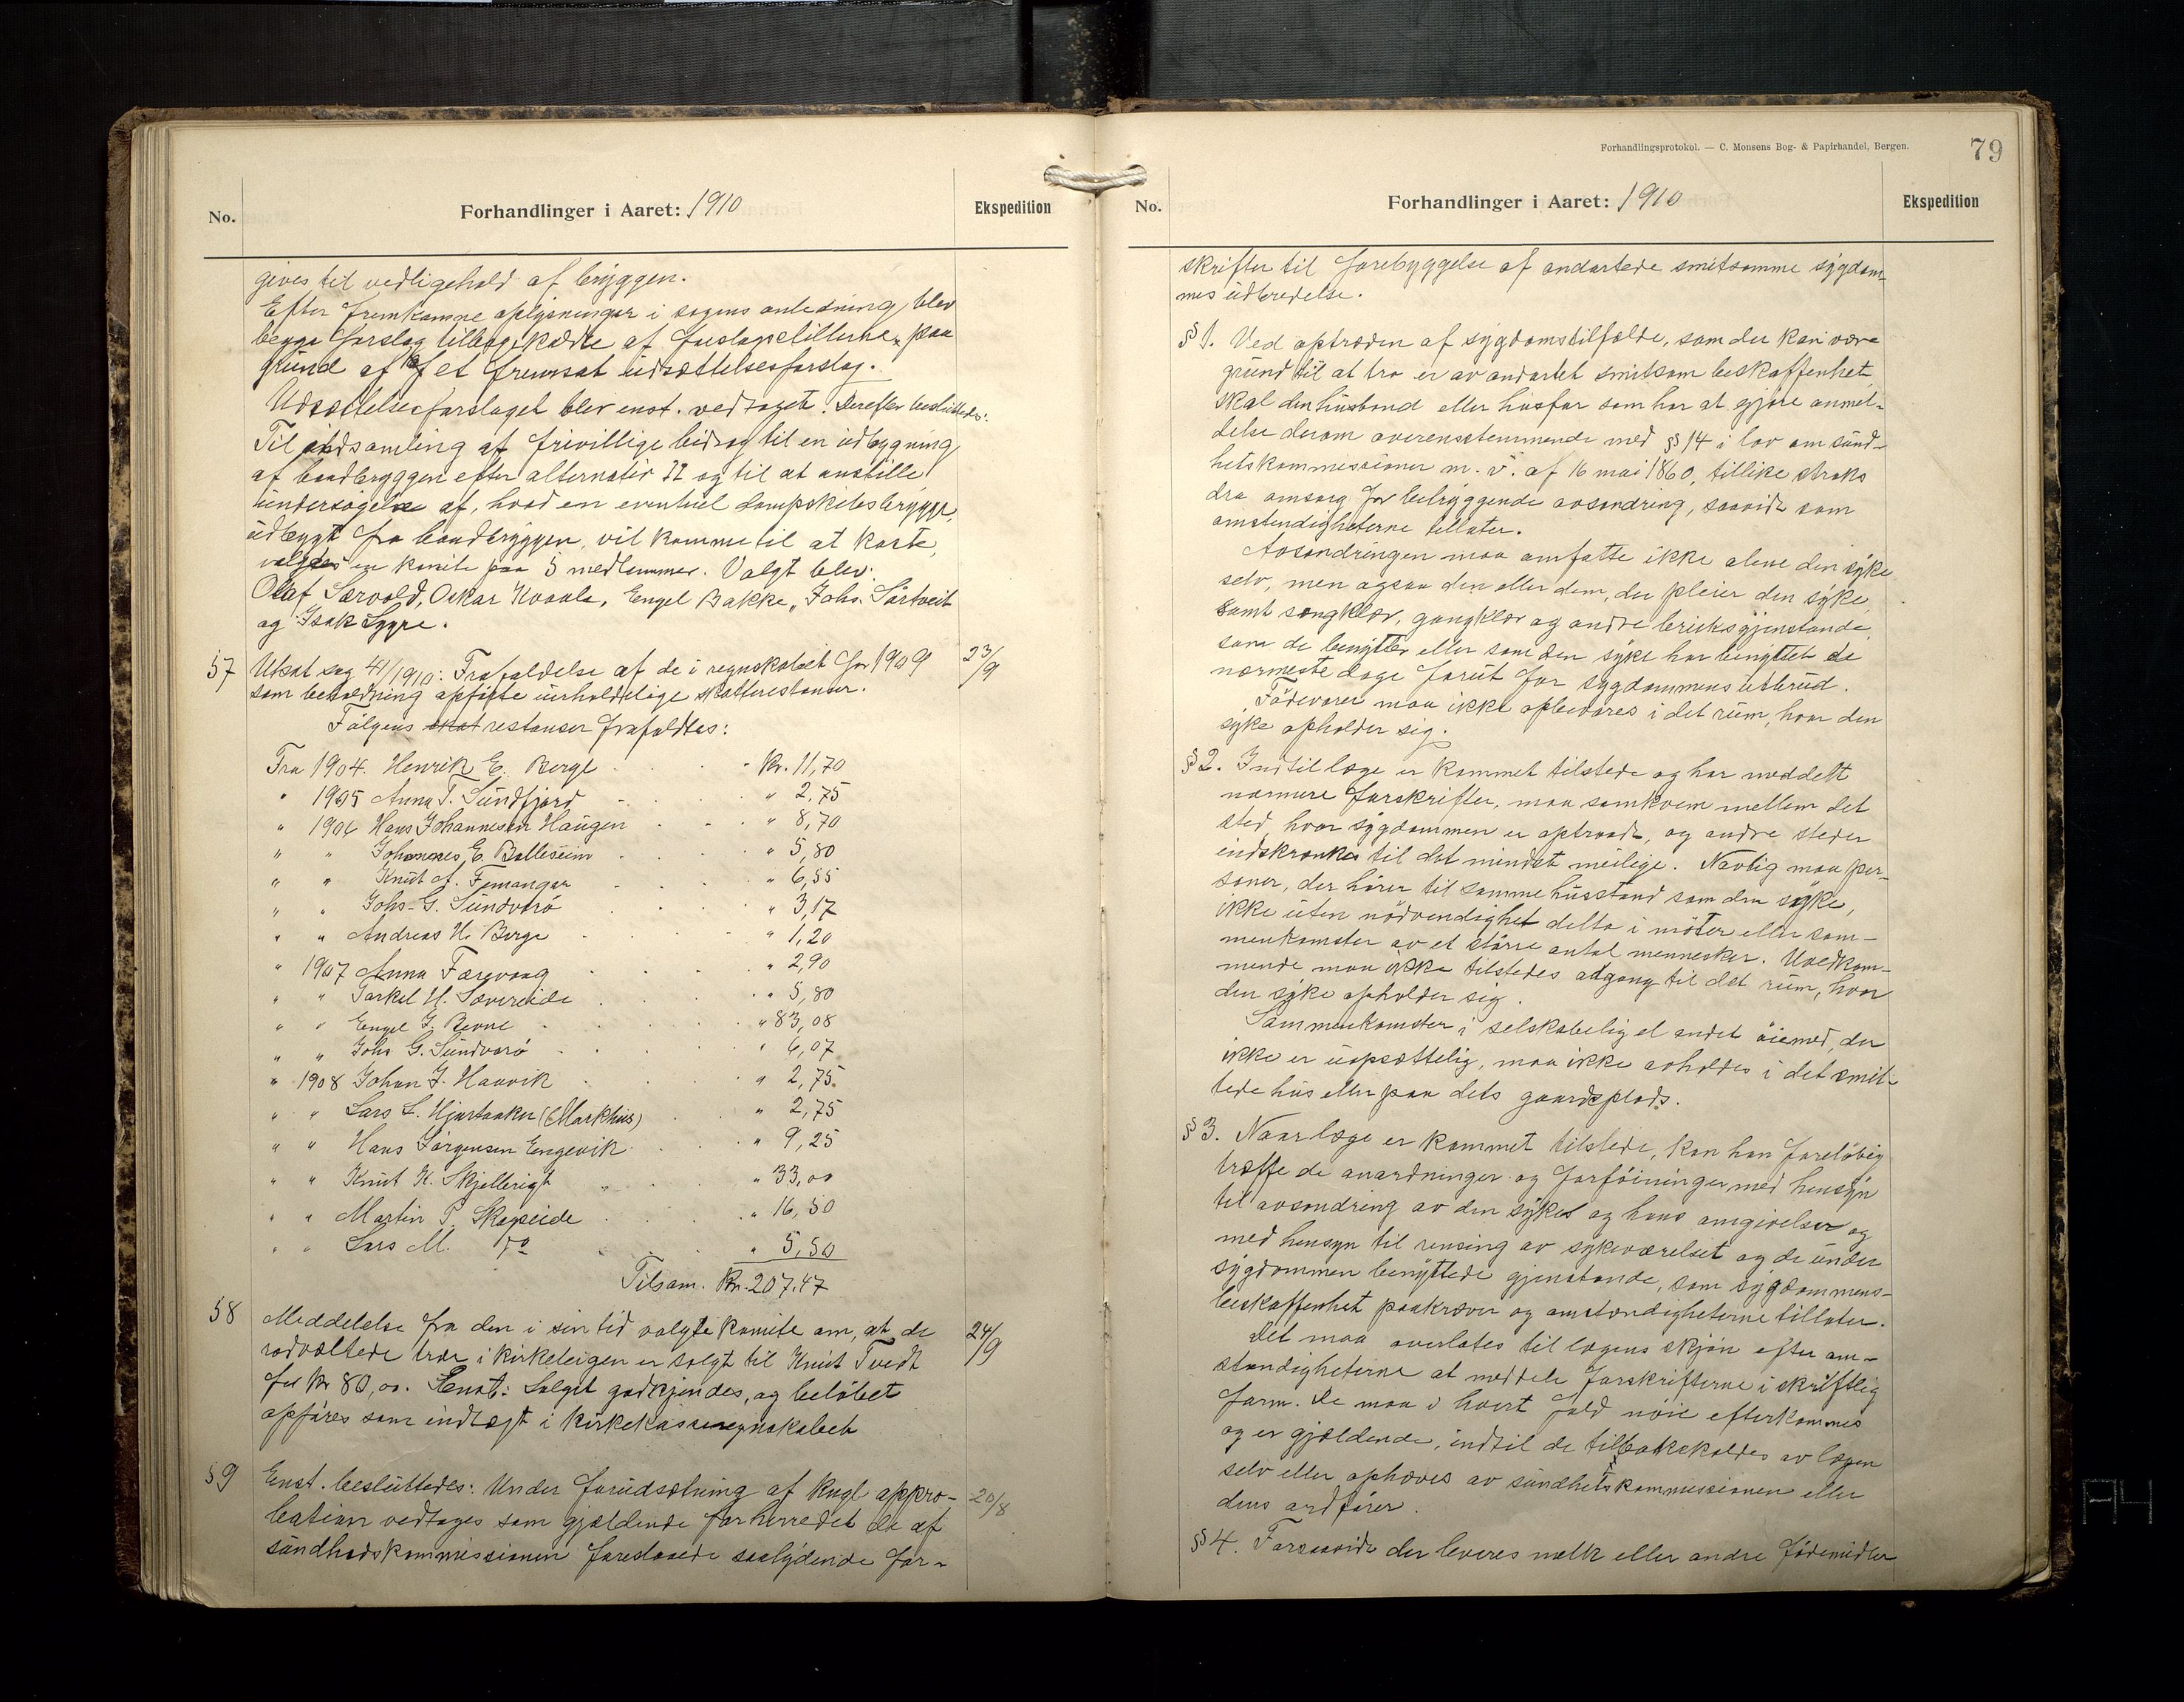 No.
Forhandlinger i Aaret: 1910
Ekspedition
gives til vedligehold af bryggen.
Efter fremkomne oplysninger i sagens anledning, blev
begge forslag tilbagekaldte af forslagstillerne, paa
grund af et fremsat udsættelsesforslag.
Udsættelsesforslaget blev enst. vedtaget. Derefter besluttedes:
Til indsamling af frivillige bidrag til en udbygning
af baadbryggen efter alternativ II og til at anstille
undersøgelse af, hvad en eventuel dampskibsbrygge,
udbygt fra baadbryggen, vil komme til at koste,
valgtes en komite paa 5 medlemmer. Valgt blev:
Olaf Særvold, Oskar Kvaale, Engel Bakke, Johs. Sørtveit
og Isak Sygre.
57 Utsat sag 41/1910: Frafaldelse af de i regnskabet for 1909 23/9
som beholdning opførte uerholdelige skatterestanser.
Følgens skat restanser frafaldtes:
Fra 1904. Henrik E. Berge Kr. 11,70
" 1905 Anna T. Sundfjord " 2,75
" 1906 Hans Johannesen Haugen " 8,70
" " Johannes E. Balleseim " 5,80
" " Knut A. Femanger " 6,55
" " Johs. G. Sundvorø " 3,17
" " Andreas H. Berge " 1,20
" 1907 Anna Færevaag " 2,90
" " Torkel H. Sævereide " 5,80
" " Engel J. Bevne " 83,08
" " Johs G. Sundvorø " 6,07
" 1908 Johan J. Haavik " 2,75
" " Lars L. Hjortaaker (Markhus) " 2,75
" " Hans Jørgensen Engevik " 9,25
" " Knut K. Skjellevigt " 33,00
" " Martin P. Skogseide " 16,50
" " Lars M. do " 5,50
Tilsam. Kr. 207.47
58 Meddelelse fra den i sin tid valgte komite om, at de 24/9
rodvæltede trær i kirkeleigen er solgt til Knut Tvedt
for kr 80,00. Enst: Salget godkjendes, og beløbet
opføres som indtægt i kirkekasseregnskabet
59 Enst. besluttedes: Under forudsætning af kngl appro- 20/8
bation vedtages som gjældende for herredet de af
sundhedskommissionen foreslaaede saalydende for-
Forhandlingsprotokol. — C. Monsens Bog- & Papirhandel, Bergen.
79
No.
Forhandlinger i Aaret: 1910
Ekspedition
skrifter til forebyggelse af ondartede smitsomme sygdom-
mes udbredelse.
§ 1. Ved optræden af sygdomstilfælde, som der kan være
grund til at tro er av ondartet smitsom beskaffenhet,
skal den husbond eller husfar som har at gjøre anmel-
delse derom overensstemmende med § 14 i lov om sund-
hetskommissioner m. v. af 16 mai 1860, tillike straks
dra omsorg for betryggende avsondring, saavidt som
omstendigheterne tillater.
Avsondringen maa omfatte ikke alene den syke
selv, men ogsaa den eller dem, der pleier den syke,
samt sengklær, gangklær og andre bruksgjenstande,
som de benytter eller som den syke har benyttet de
nærmeste dage forut for sygdommens utbrud.
Fødevarer maa ikke opbevares i det rum, hvor den
syke opholder sig.
§ 2. Indtil læge er kommet tilstede og har meddelt
nærmere forskrifter, maa samkvem mellem det
sted, hvor sygdommen er optraadt, og andre steder
indskrænkes til det mindst mulige. Navnlig maa per-
soner, der hører til samme husstand som den syke,
ikke uten nødvendighet delta i møter eller sam-
menkomster av et større antal mennesker. Uvedkom-
mende maa ikke tilstedes adgang til det rum, hvor
den syke opholder sig.
Sammenkomster i selskabelig el andet øiemed, der
ikke er uopsættelig, maa ikke avholdes i det smit-
tede hus eller paa dets gaardsplads.
§ 3. Naar læge er kommet tilstede, kan han foreløbig
træffe de anordninger og forføininger med hensyn
til avsondring av den syke og hans omgivelser og
med hensyn til rensing av sykeværelset og de under
sygdommen benyttede gjenstande, som sygdommens
beskaffenhet paakræver og omstændigheterne tillater.
Det maa overlates til lægens skjøn efter om-
stændigheterne at meddele forskrifterne i skriftlig
form. De maa i hvert fald nøie efterkommes
og er gjældende, indtil de tilbakekaldes av lægen
selv eller ophæves av sundhetskommissionen eller
dens ordfører.
§ 4. Forsaavidt der leveres melk eller andre fødemidler